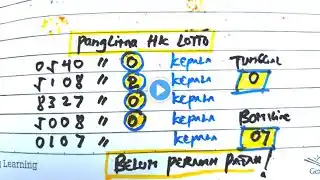 Panglima HK LOTTO
0540 " 0 KEPALA TUNGGAL
5108 " 0 KEPALA 0
8327 " 0 KEPALA
5008 " 0 KEPALA BOM LINE
0107 " KEPALA 07
BELUM PERNAH PATAH!
Learning